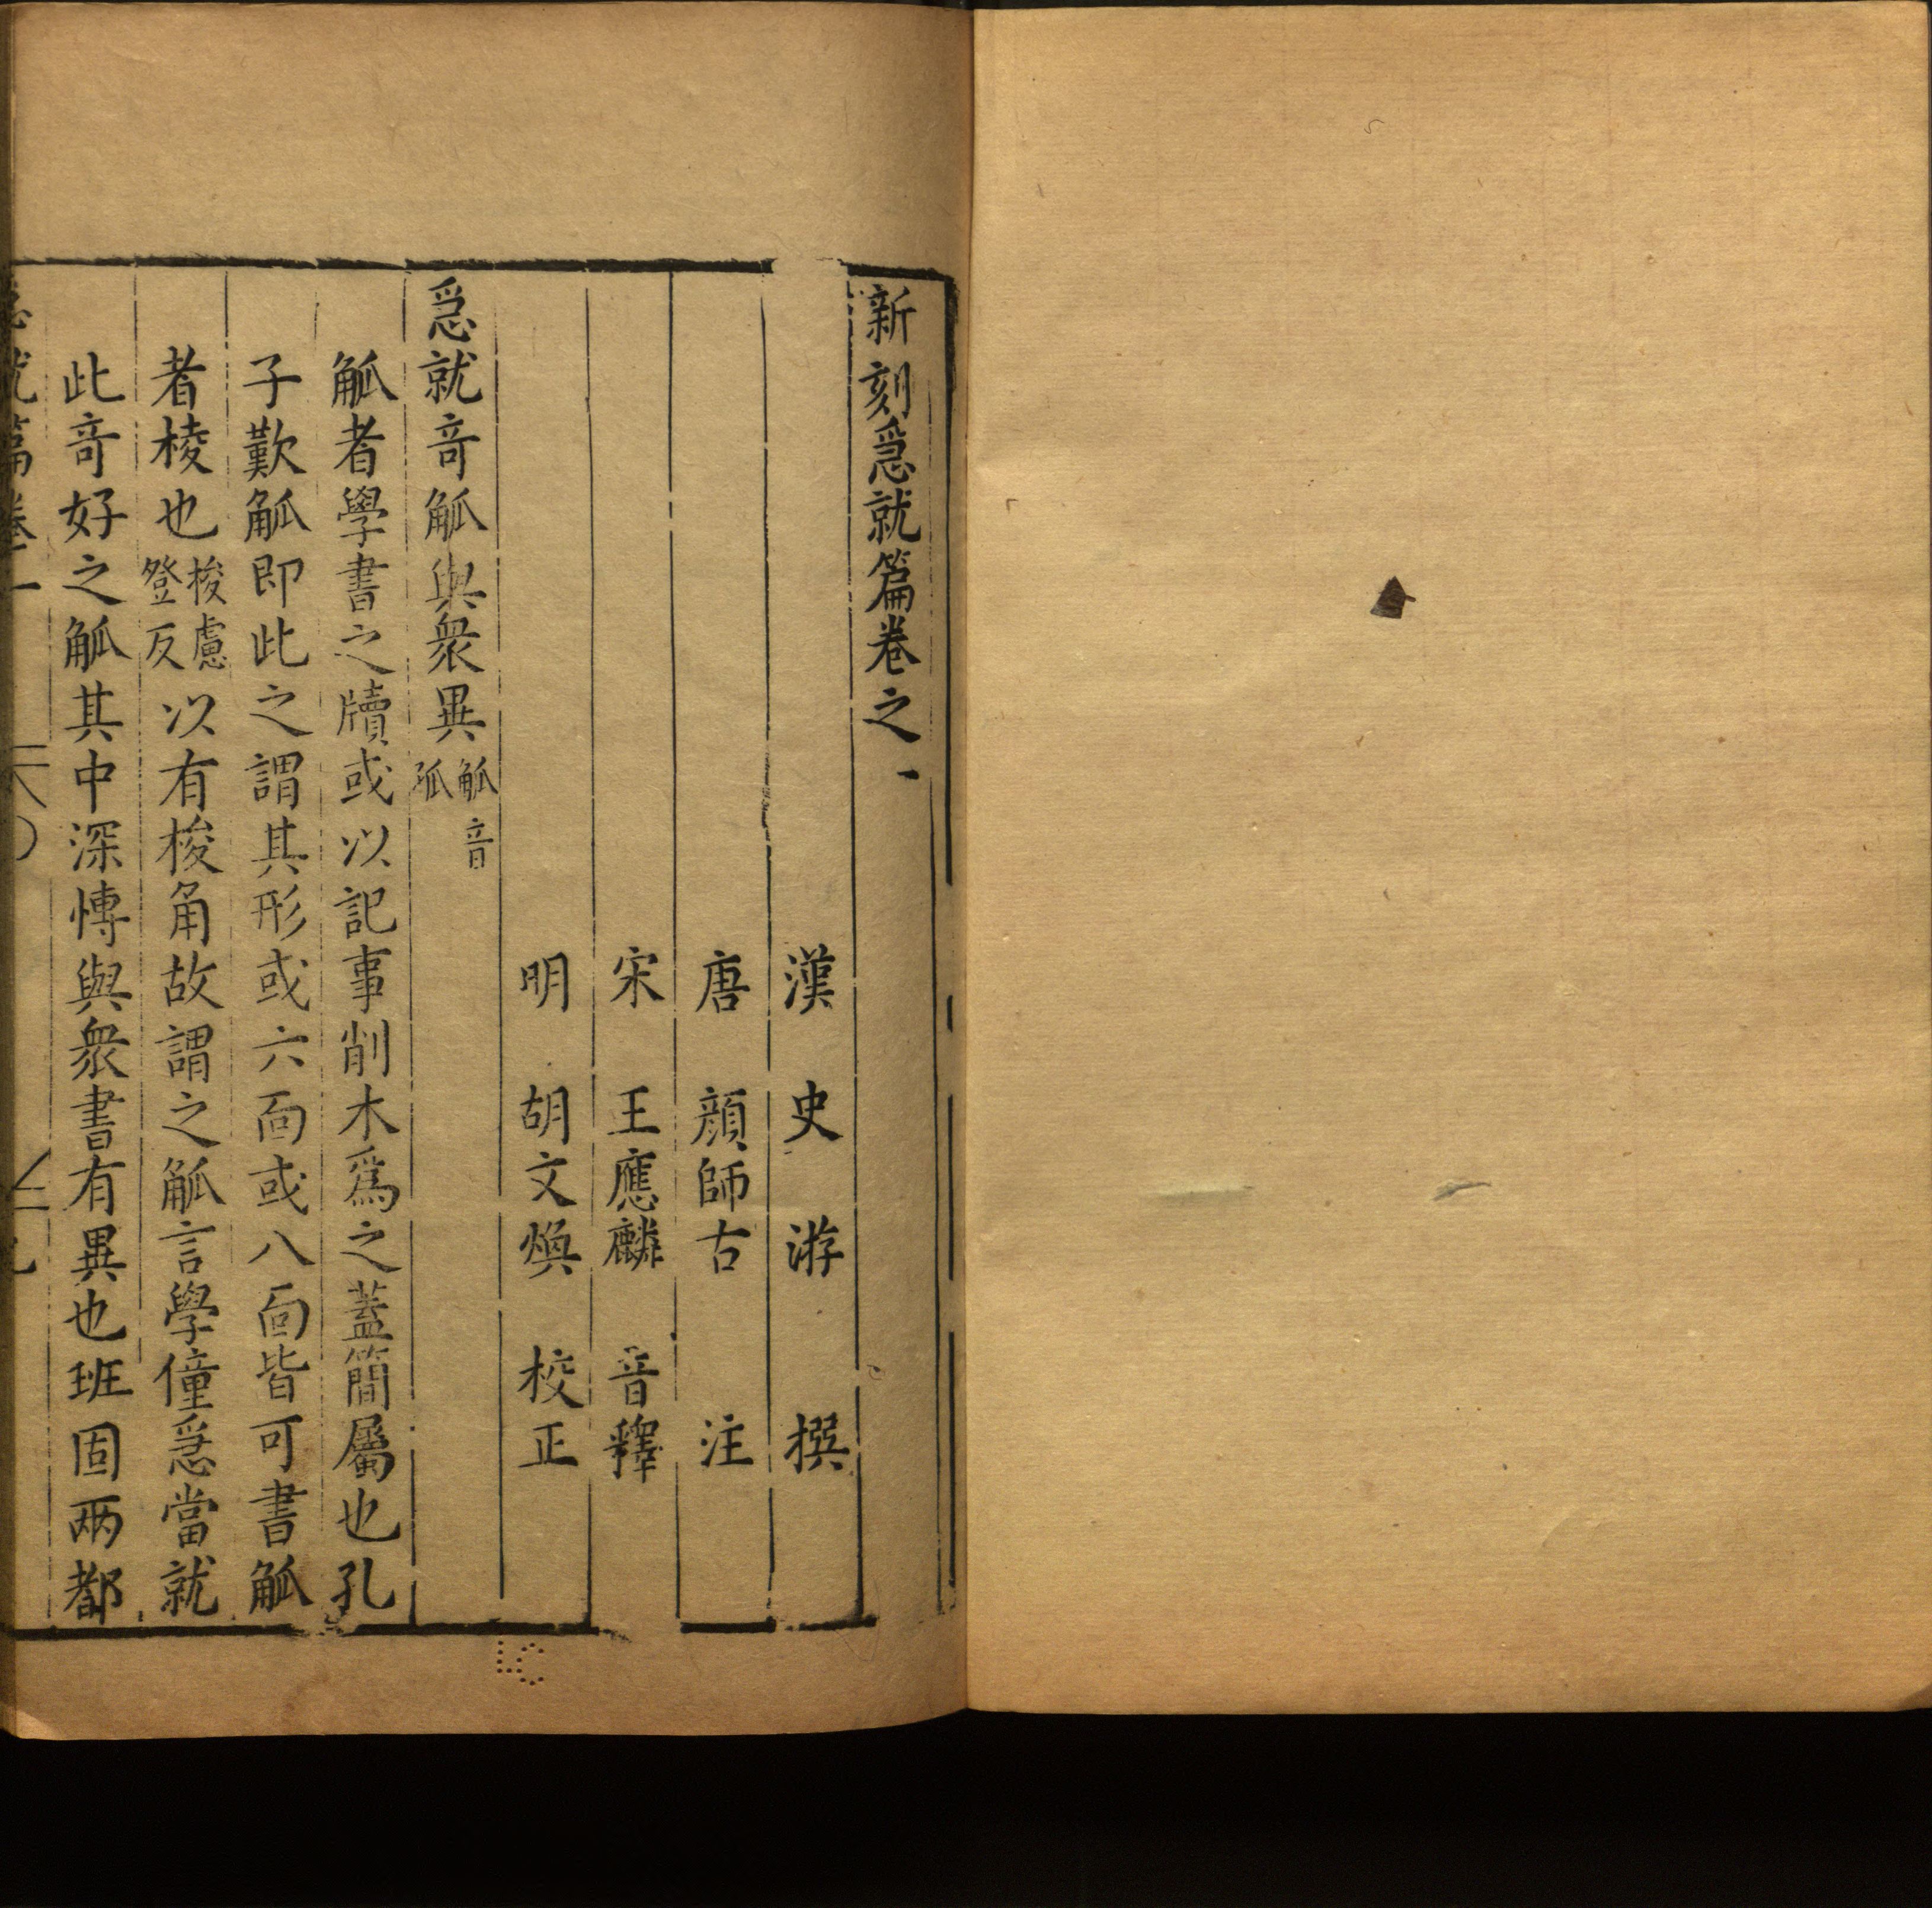 新刻急就篇卷之一
漢 史游 撰
唐 顔師古 注
宋 王應麟 音釋
明 胡文煥 校正
急就奇觚與衆異觚音孤
觚者學書之牘或以記事削木爲之蓋簡屬也孔
子歎觚即此之謂其形或六面或八面皆可書觚
者棱也棱慮登反以有棱角故謂之觚言學僮急當就
此奇好之觚其中深愽與衆書有異也班固兩都
急就篇卷一
LC